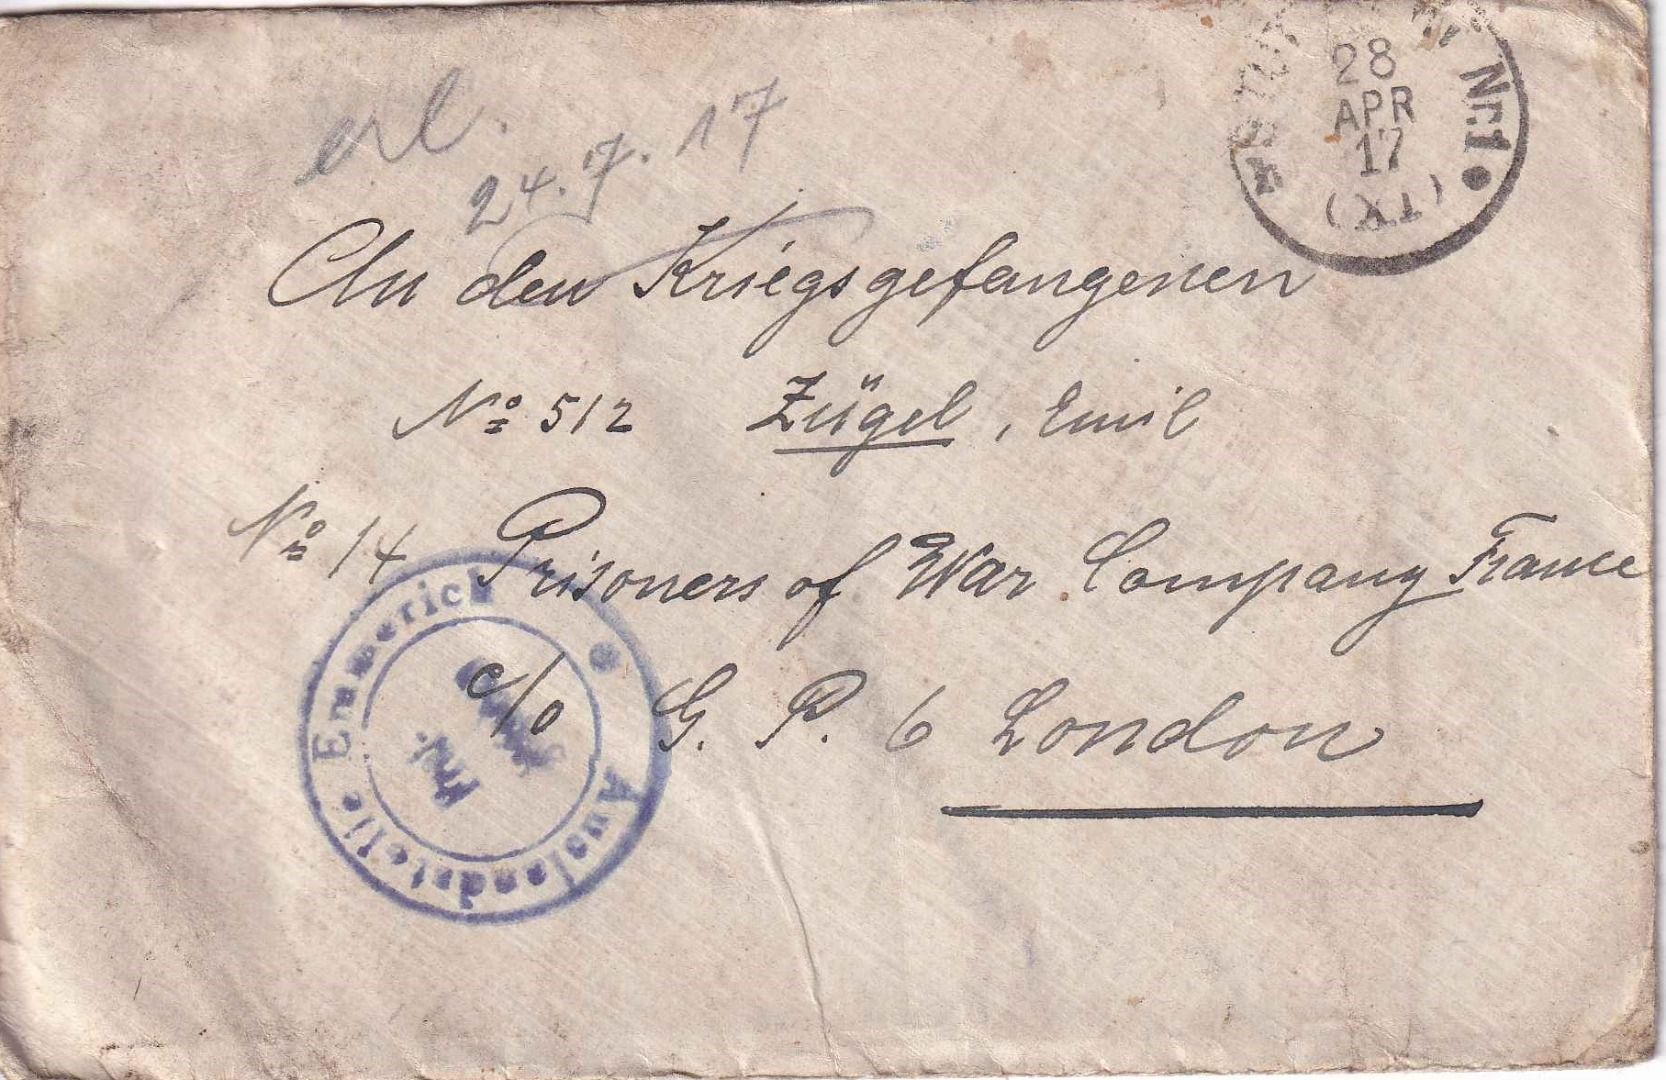 erl.
24.7.17
Nr.1
28
APR
17
(XI)
An den Kriegsgefangenen
No 512 Zügel, Emil
No 14 Prisoners of War Company France
c/o G. P. 6 London
Auslandstelle Emmerich
Frei.